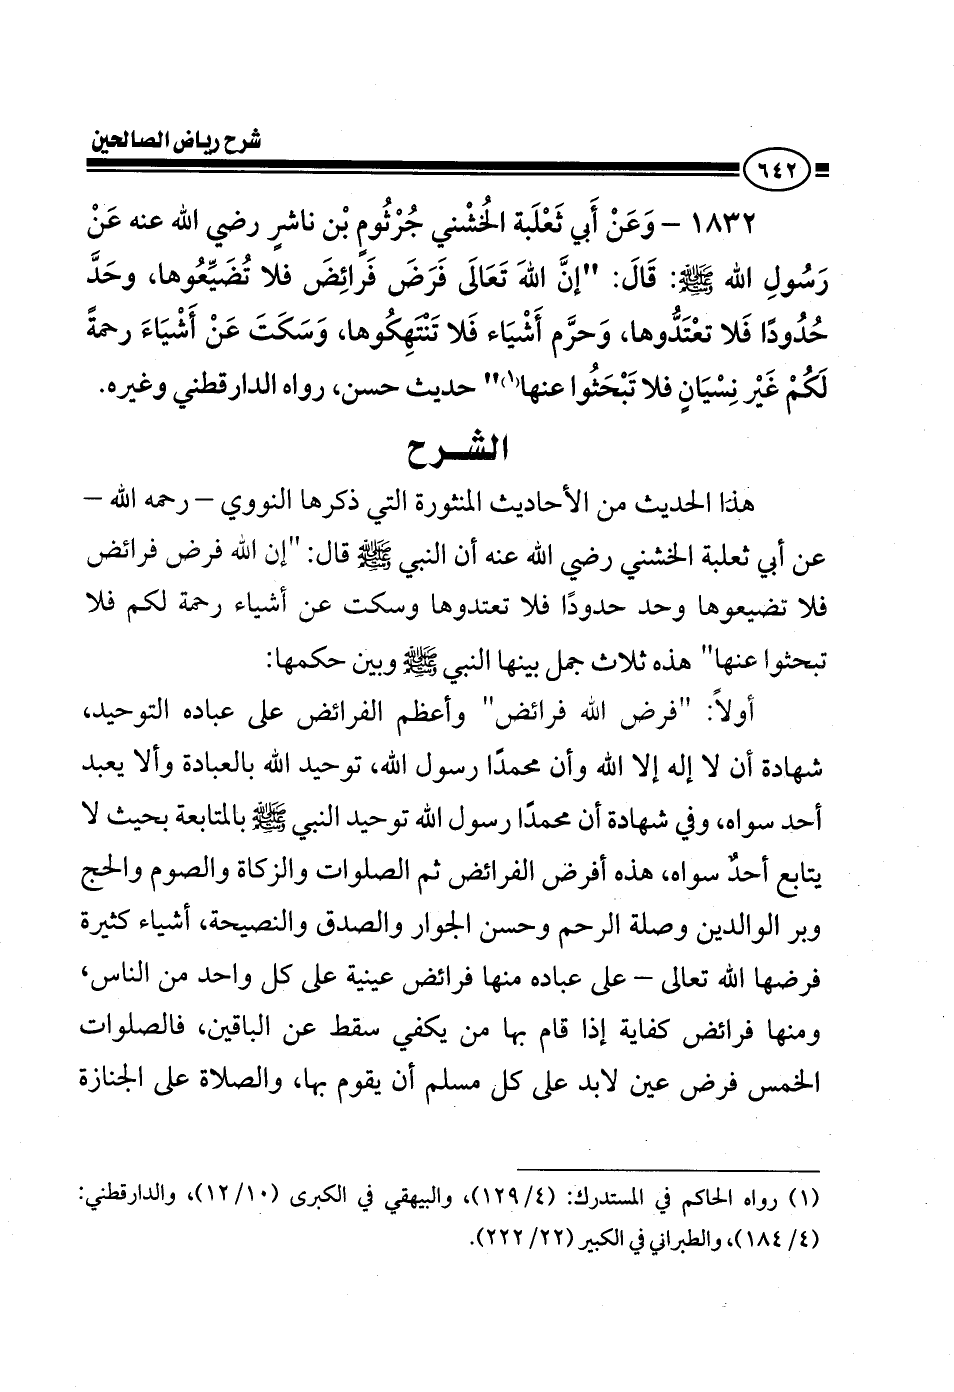 شرح رياض الصالحين
٦٤٢
١٨٣٢ - وَعَنْ أَبي ثَعْلَبة الخُشْني جُرْثُومٍ بْن ناشرٍ رضي الله عنه عَنْ
رَسُولِ الله ﷺ: قَالَ: "إنَّ اللهَ تَعَالَى فَرَضَ فَرائِضَ فلا تُضَيِّعُوها، وحَدَّ
حُدُودًا فَلا تعْتَدُّوها، وَحرَّم أَشْيَاء فَلا تَنْتَهِكُوها، وَسَكَتَ عَنْ أَشْيَاءَ رحمةً
لَكُمْ غَيْر نِسْيَانٍ فلا تَبْحَثُوا عنها(١)" حديث حسن، رواه الدارقطني وغيره.
الشـرح
هذا الحديث من الأحاديث المنثورة التي ذكرها النووي - رحمه الله -
عن أبي ثعلبة الخشني رضي الله عنه أن النبي ﷺ قال: "إن الله فرض فرائض
فلا تضيعوها وحد حدودًا فلا تعتدوها وسكت عن أشياء رحمة لكم فلا
تبحثوا عنها" هذه ثلاث جمل بينها النبي ﷺ وبين حكمها:
أولاً: "فرض الله فرائض" وأعظم الفرائض على عباده التوحيد،
شهادة أن لا إله إلا الله وأن محمدًا رسول الله، توحيد الله بالعبادة وألا يعبد
أحد سواه، وفي شهادة أن محمدًا رسول الله توحيد النبي ﷺ بالمتابعة بحيث لا
يتابع أحدٌ سواه، هذه أفرض الفرائض ثم الصلوات والزكاة والصوم والحج
وبر الوالدين وصلة الرحم وحسن الجوار والصدق والنصيحة، أشياء كثيرة
فرضها الله تعالى - على عباده منها فرائض عينية على كل واحد من الناس،
ومنها فرائض كفاية إذا قام بها من يكفي سقط عن الباقين، فالصلوات
الخمس فرض عين لابد على كل مسلم أن يقوم بها، والصلاة على الجنازة
(١) رواه الحاكم في المستدرك: (٤/ ١٢٩)، والبيهقي في الكبرى (١٠/ ١٢)، والدارقطني:
(٤/ ١٨٤)، والطبراني في الكبير (٢٢/ ٢٢٢).